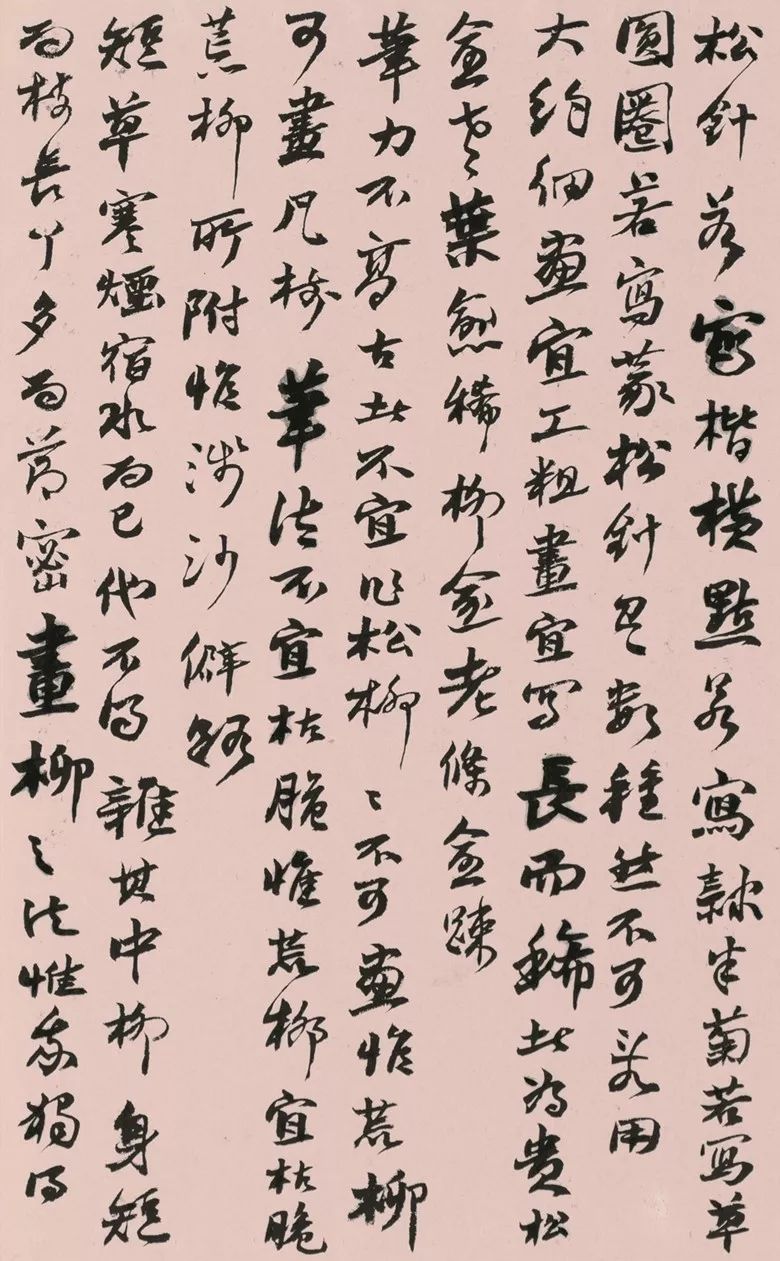 松針若寫楷橫點若寫隸半菊若寫草
圓圈若寫篆松針數種然不可混用
大約細畫宜工粗畫宜寫長而稀此為貴松
愈老葉愈稀柳愈老條愈疎
筆力不高古此不宜作松柳々不可畫惟荒柳
可畫凡樹筆法不宜枯脆惟荒柳宜枯脆
荒柳所附惟淺沙僻路
短草寒煙宿水而已他不得雜其中柳身短
而枝長丫多而節密畫柳之法惟余獨得